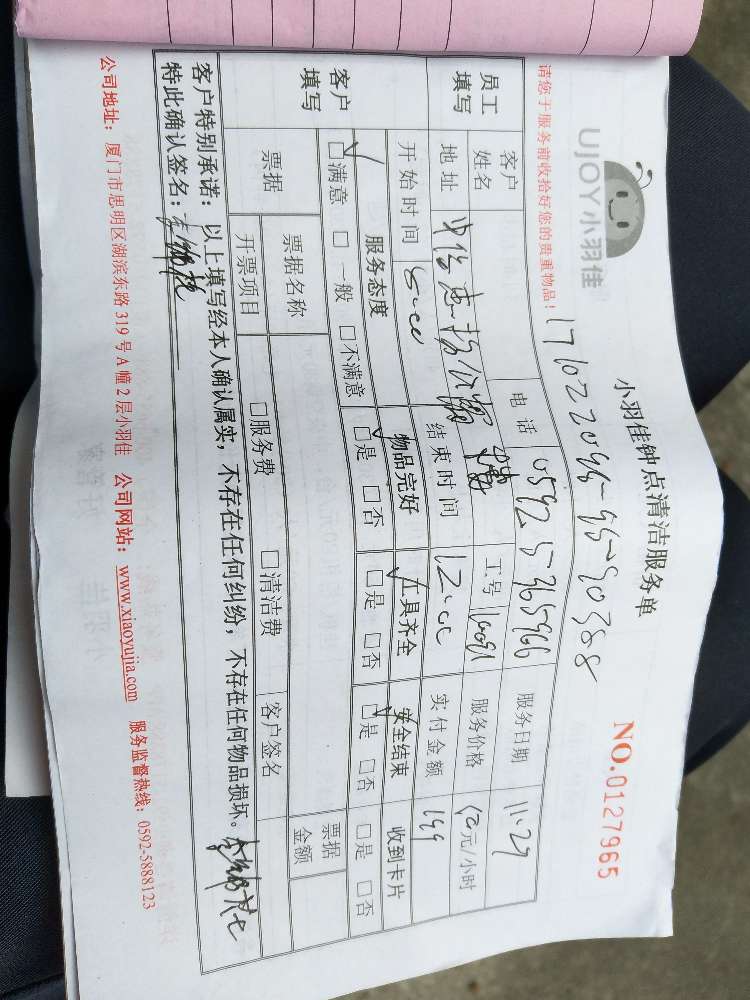 UJOY小羽佳
小羽佳钟点清洁服务单
NO.0127965
请您于服务前收拾好您的贵重物品!
员工填写
客户姓名
电话 0592 5365966
服务日期 11.29
地址
工号
服务价格 元/小时
开始时间
结束时间
实付金额 199
客户填写
服务态度
物品完好
工具齐全
安全结束
收到卡片
☑满意 □一般 □不满意
☑是 □否
☑是 □否
☑是 □否
□是 □否
票据
票据名称
客户签名
票据金额
开票项目
□服务费
□清洁费
客户特别承诺:以上填写经本人确认属实,不存在任何纠纷,不存在任何物品损坏。
特此确认签名:
公司地址:厦门市思明区湖滨东路 319 号 A 幢 2 层小羽佳 公司网站:www.xiaoyujia.com 服务监督热线:0592-5888123